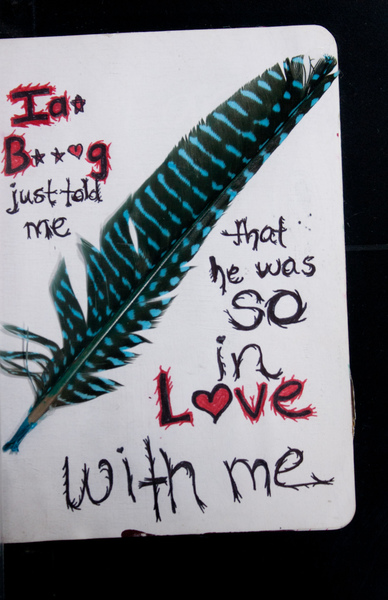 Ia★
B★★♥g
just told
me
that
he was
so
in
L♥ve
with me